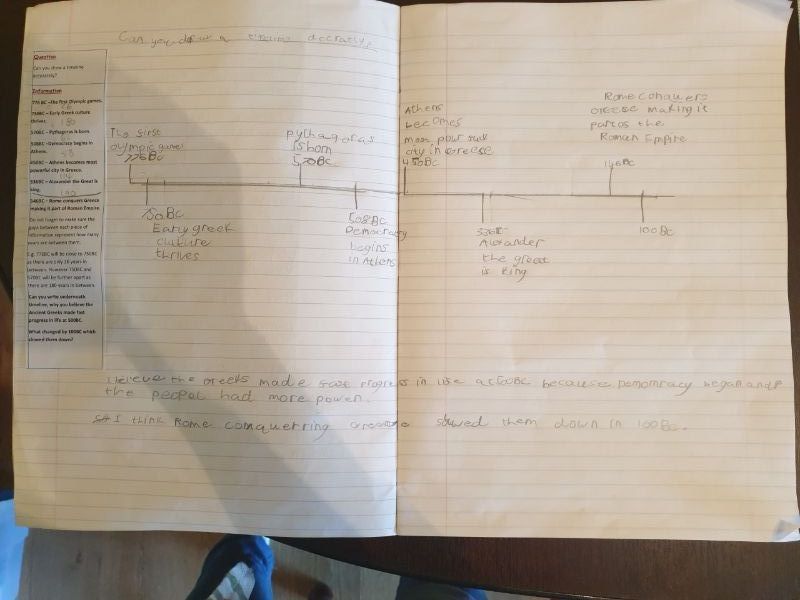 Can you draw a
Question
Can you draw a timeline
accurately?
Information
776 BC – The first Olympic games.
750BC – Early Greek culture
thrives.
180
570BC – Pythagoras is born
508BC – Democracy begins in
Athens.
450BC – Athens becomes most
powerful city in Greece.
336BC – Alexander the Great is
king.
190
146BC – Rome conquers Greece
making it part of Roman Empire.
Do not forget to make sure the
gaps between each piece of
information represent how many
years are between them.
E.g. 776BC will be close to 750BC
as there are only 26 years in
between. However 750BC and
570BC will be further apart as
there are 180 years in between.
Can you write underneath
timeline, why you believe the
Ancient Greeks made fast
progress in life at 500BC.
What changed by 100BC which
slowed them down?
The first
olympic games
776BC
pythagoras
is born
570BC
Athens
becomes
most
city in Greese
450BC
Rome conquers
Greese making it
part of the
Roman Empire
146BC
750BC
Early greek
culuture
thrives
508BC
Democracy
begins
in Athens
336BC
Alexander
the great
is king
100BC
I believe the Greeks made fast progress in life at 500BC because began and
the peopel had more power.
I think Rome conquerring slowed them down in 100BC.